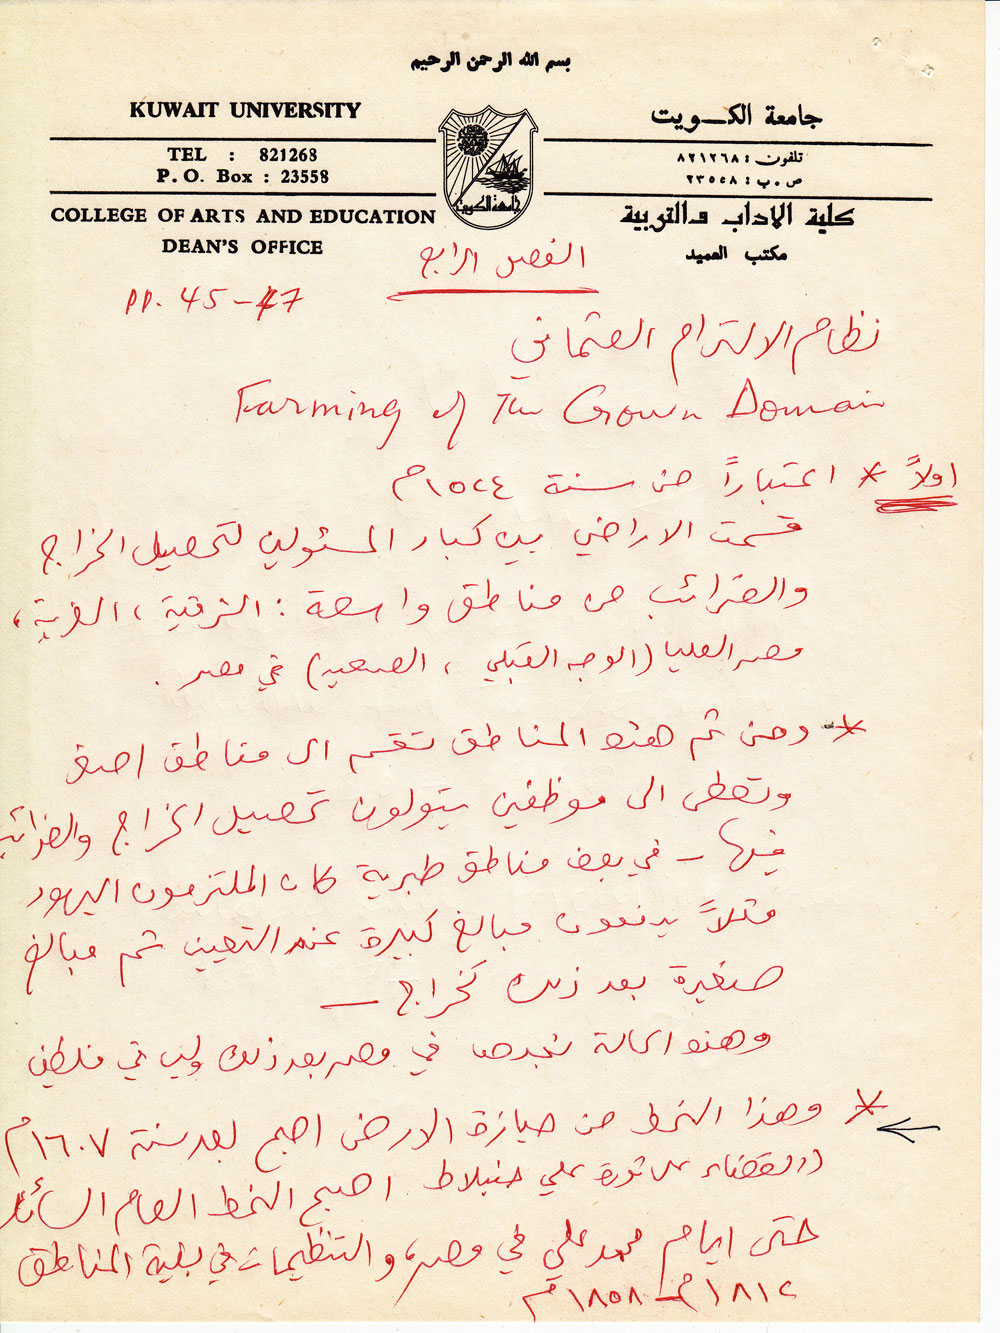 بسم الله الرحمن الرحيم
KUWAIT UNIVERSITY
جامعة الكويت
TEL : 821268
تلفون : ٨٢١٢٦٨
P. O. Box : 23558
ص . ب : ٢٣٥٥٨
COLLEGE OF ARTS AND EDUCATION
كلية الآداب والتربية
DEAN'S OFFICE
مكتب العميد
جامعة الكويت
الفصل الرابع
PP. 45-47
نظام الالتزام العثماني
Farming of The Crown Domain
اولاً * اعتباراً من سنة ١٥٢٤م
قسمت الاراضي بين كبار المسئولين لتحصيل الخراج
والضرائب من مناطق واسعة : الشرقية ، الغربية ،
مصر العليا (الوجه القبلي ، الصعيد) في مصر .
* ومن ثم هذه المناطق تقسم الى مناطق اصغر
وتعطى الى موظفين يتولون تحصيل الخراج والضرائب
فيها – في بعض مناطق طبرية كان الملتزمون اليهود
مثلاً يدفعون مبالغ كبيرة عند التعيين ثم مبالغ
صغيرة بعد ذلك كخراج –
وهذه الحالة نجدها في مصر بعد ذلك وليس في فلسطين
* وهذا النمط من حيازة الارض اصبح بعد سنة ١٦٠٧م
(القضاء على ثورة علي جنبلاط اصبح النمط العام السائد
حتى ايام محمد علي في مصر، والتنظيمات في بقية المناطق
١٨١٢م – ١٨٥٨م